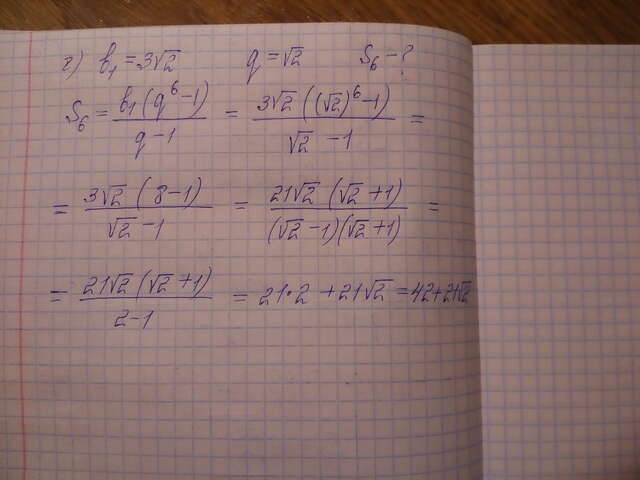 г) b₁ = 3√2 q = √2 S₆ - ?
S₆ = b₁(q⁶-1)/(q-1) = 3√2((√2)⁶-1)/(√2-1) =
= 3√2(8-1)/(√2-1) = 21√2(√2+1)/((√2-1)(√2+1)) =
= 21√2(√2+1)/(2-1) = 21·2 + 21√2 = 42+21√2